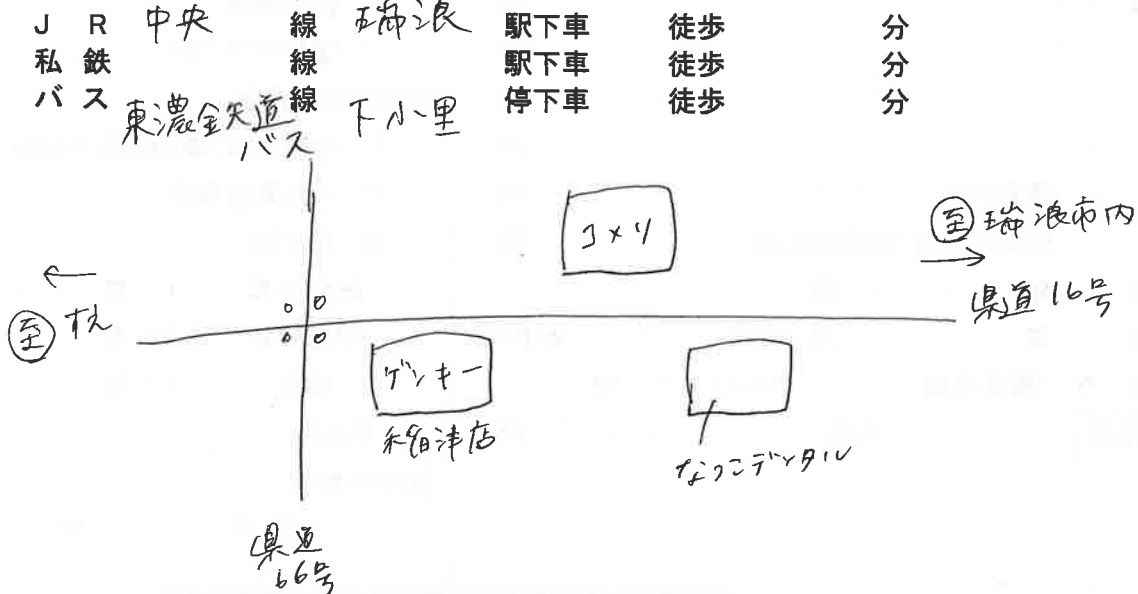 JR 中央 線 瑞浪 駅下車 徒歩 分
私鉄 線 駅下車 徒歩 分
バス 東濃鉄道バス 線 下小里 停下車 徒歩 分
コメリ
至 瑞浪市内
県道16号
至
ゲンキー
稲津店
なつこデンタル
県道
66号